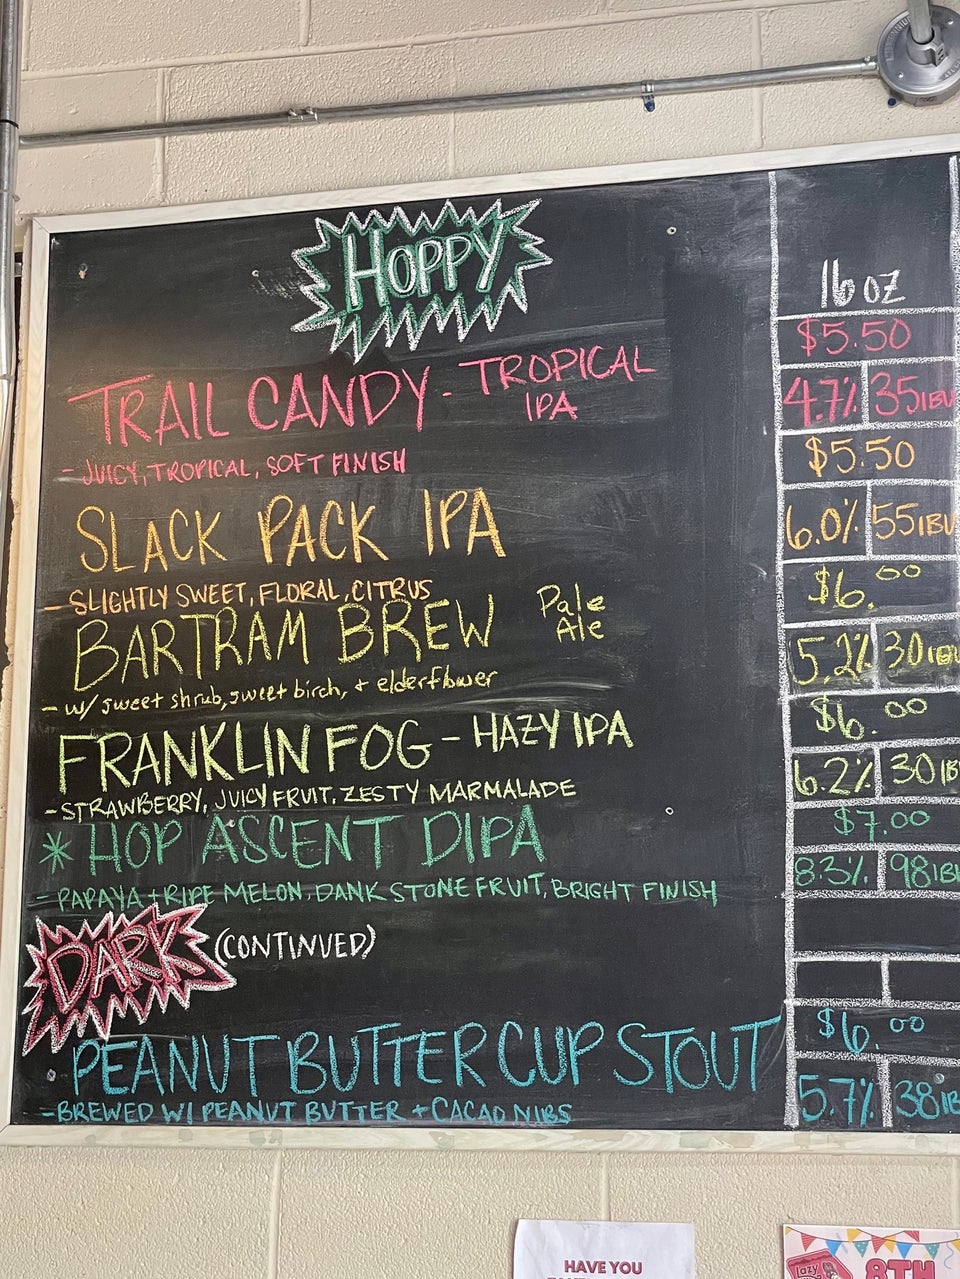 HOPPY
16 OZ
TRAIL CANDY - TROPICAL IPA
$5.50
- JUICY, TROPICAL, SOFT FINISH
4.7% 35 IBU
SLACK PACK IPA
$5.50
- SLIGHTLY SWEET, FLORAL, CITRUS
6.0% 55 IBU
BARTRAM BREW Pale Ale
$6.00
- w/ sweet shrub, sweet birch, + elderflower
5.2% 30 IBU
FRANKLIN FOG - HAZY IPA
$6.00
- STRAWBERRY, JUICY FRUIT, ZESTY MARMALADE
6.2% 30 IB
* HOP ASCENT DIPA
$7.00
- PAPAYA + RIPE MELON, DANK STONE FRUIT, BRIGHT FINISH
8.3% 98 IB
DARK (CONTINUED)
PEANUT BUTTER CUP STOUT
$6.00
- BREWED W/ PEANUT BUTTER + CACAO NIBS
5.7% 38 IB
HAVE YOU
8TH
lazy